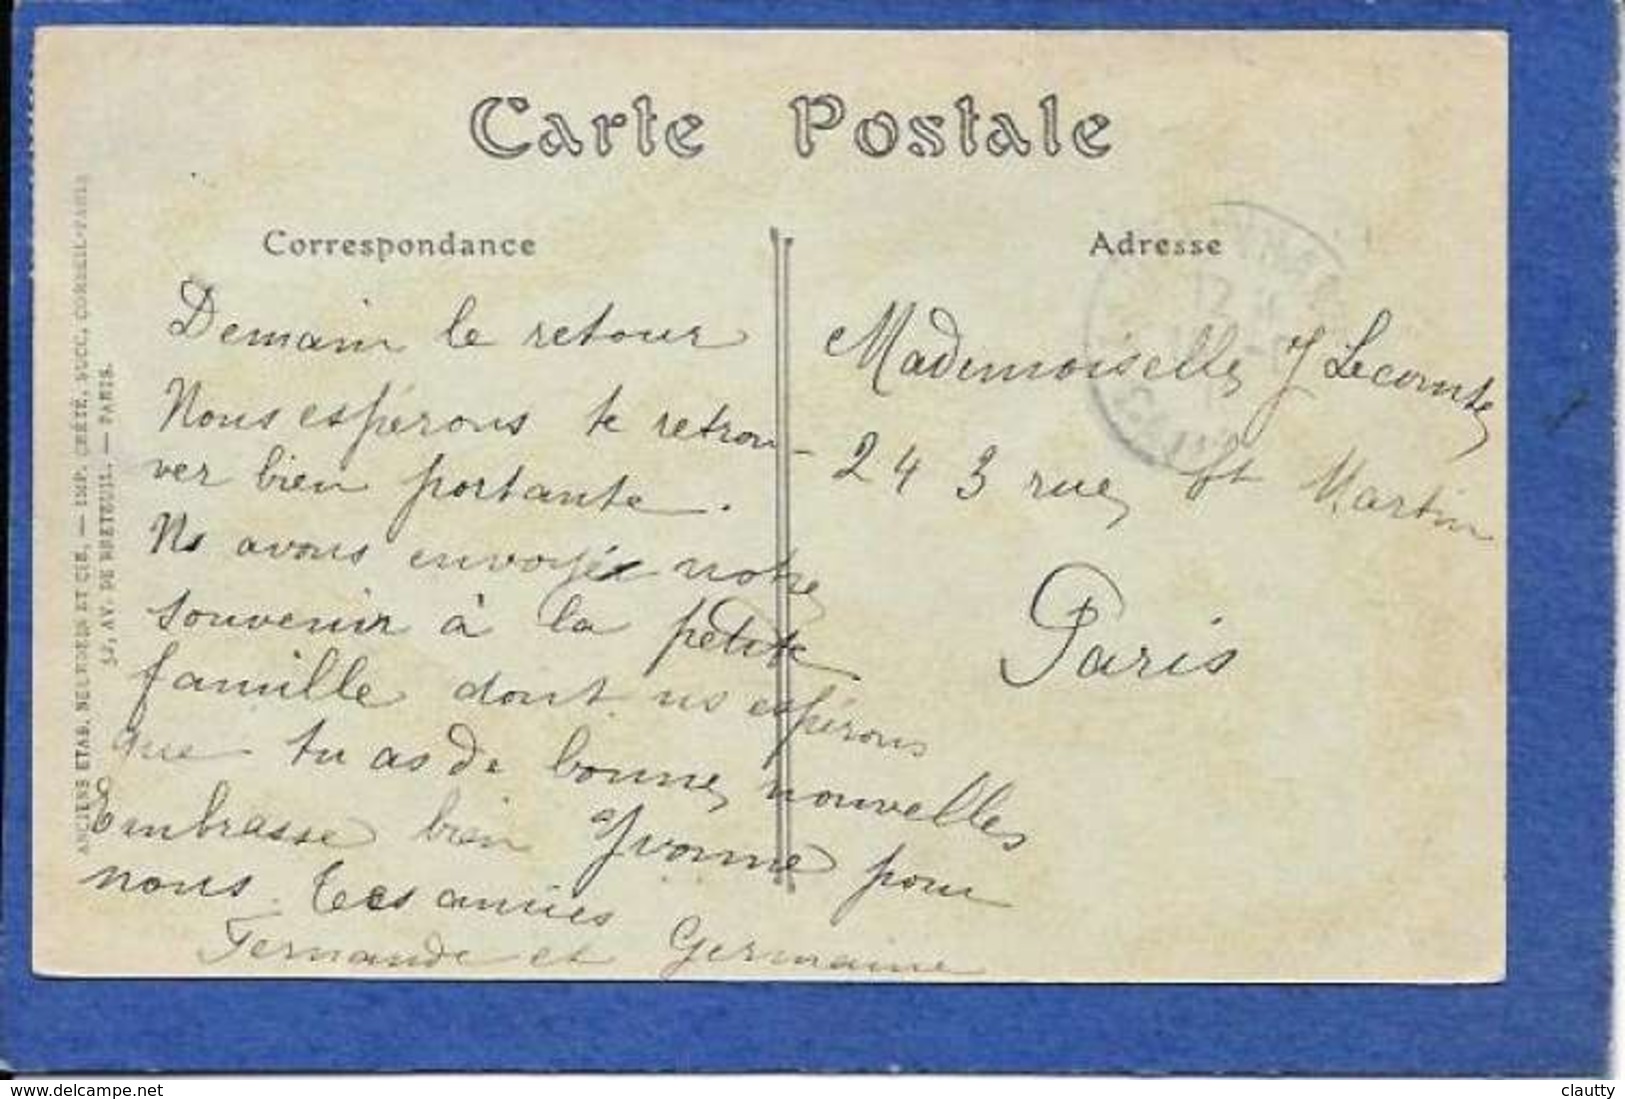 Carte Postale
Correspondance
Demain le retour
Nous espérons te retrou-
ver bien portante.
Ns avons envoyé notre
souvenir à la petite
famille dont ns espérons
que tu as de bonne nouvelles
Embrasse bien Yvonne pour
nous. Tes amies
Fernande et Germaine
Adresse
Mademoiselle J Lecomte
243 rue St Martin
Paris
ANCIENS ETAB. NEURDEIN ET CIE, — IMP. CRÉTÉ, SUCC., CORBEIL-PARIS
52, AV. DE BRETEUIL. — PARIS.
www.delcampe.net
clautty